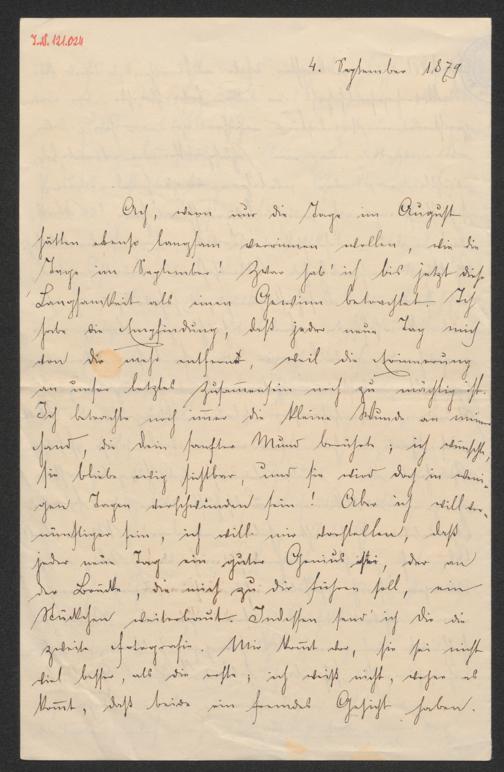 I.N. 121.024
4. September 1879
Ach, wenn nur die Tage im August
hätten ebenso langsam verrinnen wollen, wie die
Tage im September! Zwar hab' ich bis jetzt diese
Langsamkeit als einen Gewinn betrachtet. Ich
habe die Empfindung, daß jeder neue Tag mich
von dir mehr entfernt, weil die Erinnerung
an unser letztes Zusammensein noch zu mächtig ist.
Ich betrachte noch im̅er die kleine Wunde an meiner
Hand, die dein sanfter Mund berührte; ich wünschte,
sie bliebe ewig sichtbar, und sie wird doch in weni-
gen Tagen verschwunden sein! Aber ich will ver-
nünftiger sein, ich will mir vorstellen, daß
jeder neue Tag ein guter Genius sei, der an
der Brücke, die mich zu dir führen soll, ein
Stückchen weiterbaut. Indessen send' ich dir die
zweite Fotografie. Mir kom̅t vor, sie sei nicht
viel besser, als die erste; ich weiß nicht, woher es
kom̅t, daß beide ein fremdes Gesicht haben.